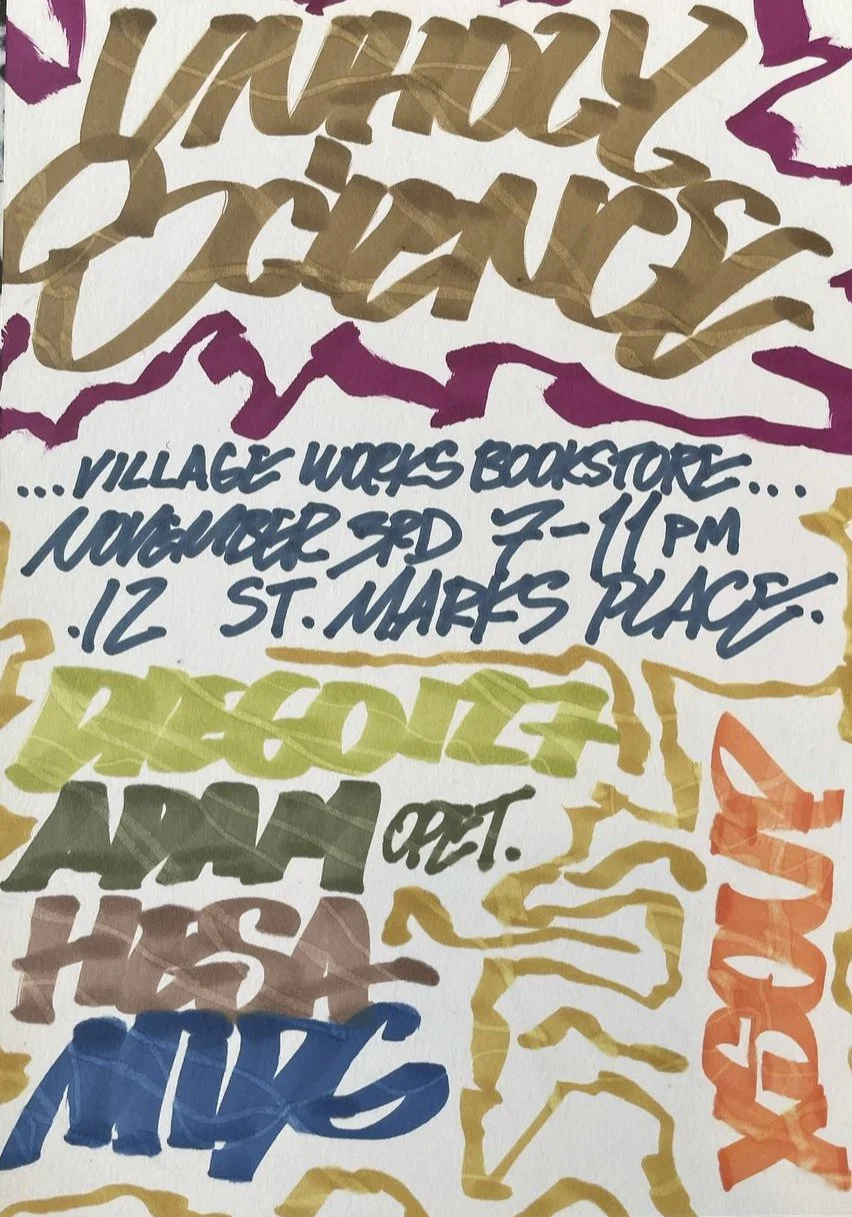 UNHOLY
SCIENCE
...VILLAGE WORKS BOOKSTORE...
NOVEMBER 3RD 7-11 PM
.12 ST. MARKS PLACE.
ADAM
HESA